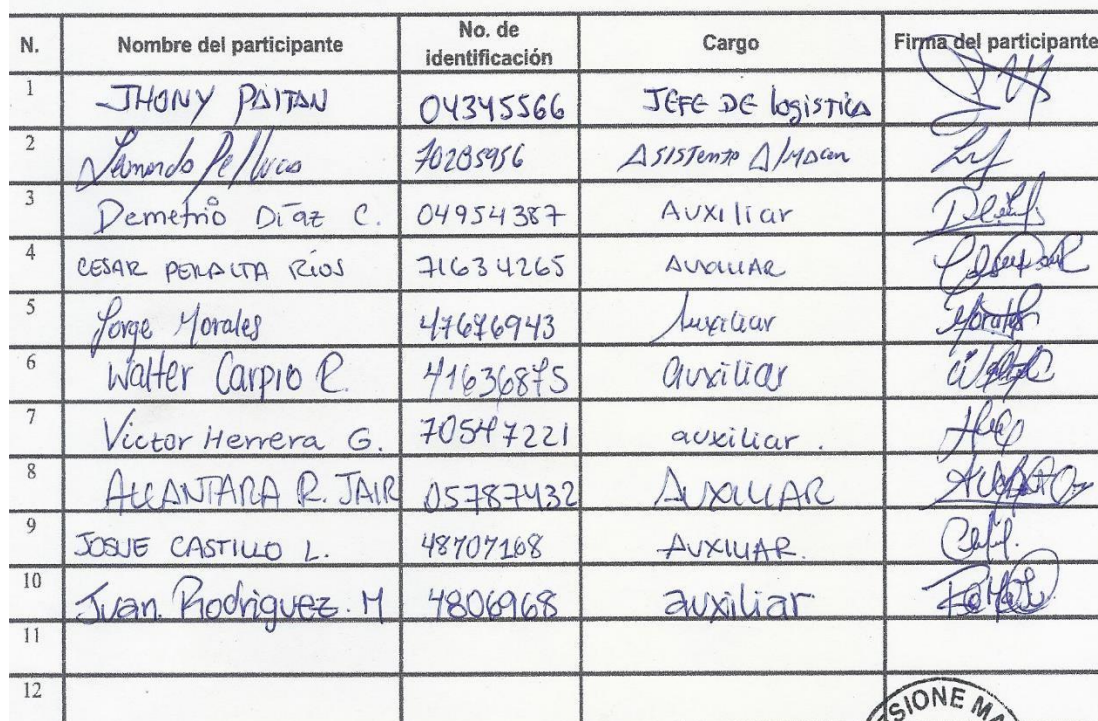 N. Nombre del participante No. de identificación Cargo Firma del participante
1 JHONY PAITAN 04345566 JEFE DE logistica
2 70285956 Asistente Almacen
3 Demetrio Díaz C. 04954387 Auxiliar
4 CESAR PERALTA RIOS 71634265 AUXILIAR
5 Jorge Morales 47676943 Auxiliar
6 Walter Carpio R. 41636875 auxiliar
7 Victor Herrera G. 70547221 auxiliar.
8 ALCANTARA R. JAIR 05787432 AUXILIAR
9 JOSUE CASTILLO L. 48707168 AUXILIAR.
10 Juan. Rodriguez. M 4806968 auxiliar
11
12
SIONE MA